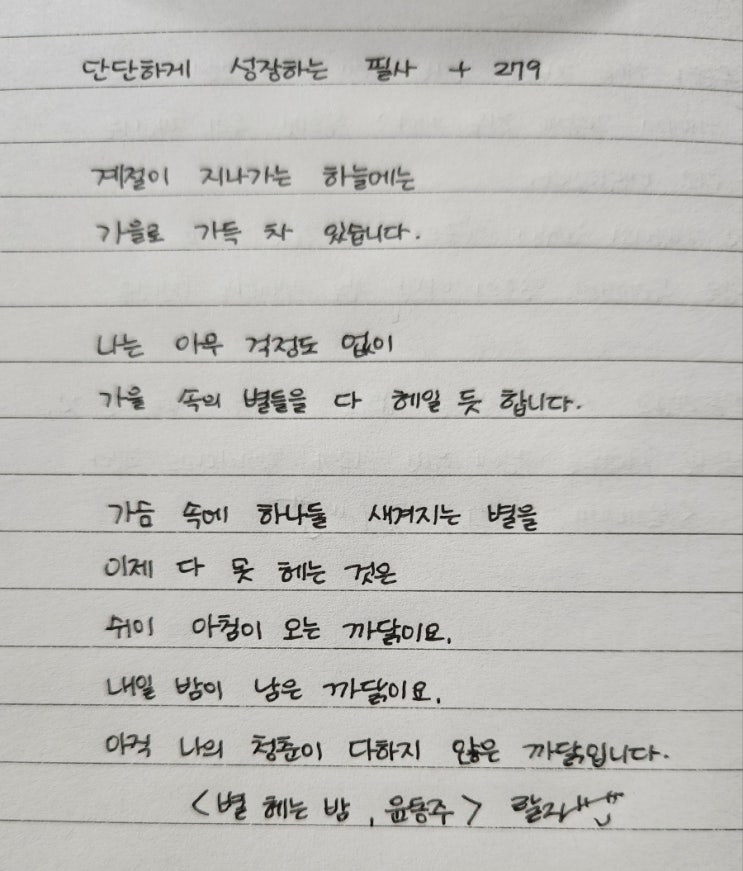 단단하게 성장하는 필사 + 279
계절이 지나가는 하늘에는
가을로 가득 차 있습니다.
나는 아무 걱정도 없이
가을 속의 별들을 다 헤일 듯 합니다.
가슴 속에 하나둘 새겨지는 별을
이제 다 못 헤는 것은
쉬이 아침이 오는 까닭이요,
내일 밤이 남은 까닭이요,
아직 나의 청춘이 다하지 않은 까닭입니다.
<별 헤는 밤, 윤동주>